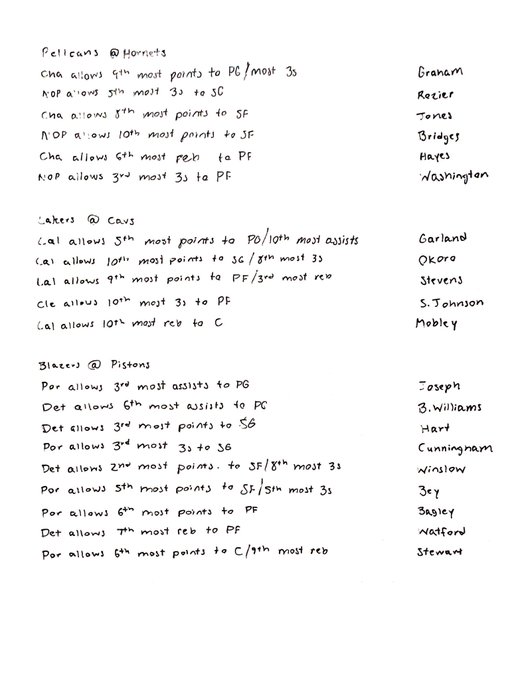 Pelicans @ Hornets
Cha allows 9th most points to PG/most 3s Graham
NOP allows 5th most 3s to SG Rozier
Cha allows 8th most points to SF Jones
NOP allows 10th most points to SF Bridges
Cha allows 6th most reb to PF Hayes
NOP allows 3rd most 3s to PF Washington
Lakers @ Cavs
Lal allows 5th most points to PG/10th most assists Garland
Lal allows 10th most points to SG/8th most 3s Okoro
Lal allows 9th most points to PF/3rd most reb Stevens
Cle allows 10th most 3s to PF S. Johnson
Lal allows 10th most reb to C Mobley
Blazers @ Pistons
Por allows 3rd most assists to PG Joseph
Det allows 6th most assists to PG B. Williams
Det allows 3rd most points to SG Hart
Por allows 3rd most 3s to SG Cunningham
Det allows 2nd most points. to SF/8th most 3s Winslow
Por allows 5th most points to SF/5th most 3s Bey
Por allows 6th most points to PF Bagley
Det allows 7th most reb to PF Watford
Por allows 6th most points to C/9th most reb Stewart